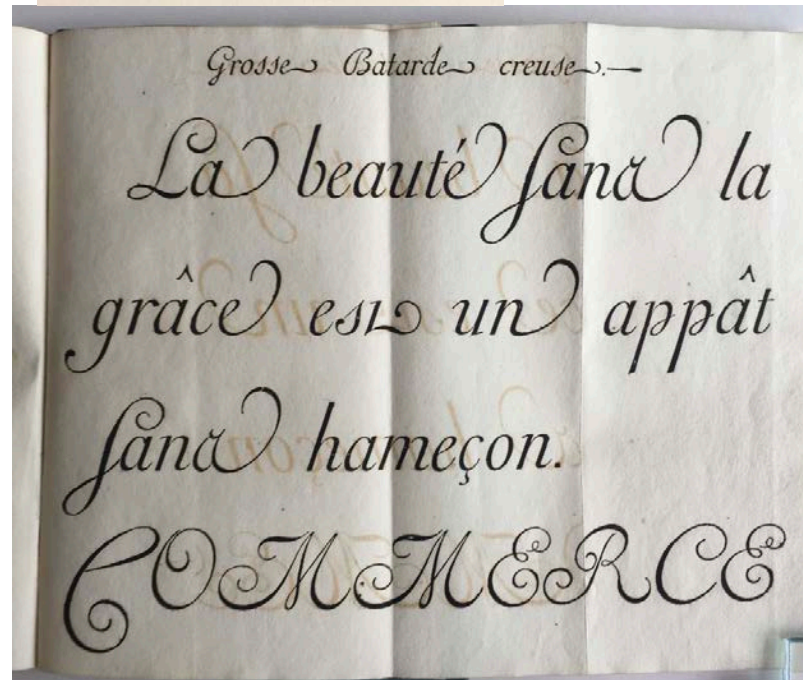 Grosse Batarde creuse.
La beauté sans la
grâce est un appât
sans hameçon.
COMMERCE